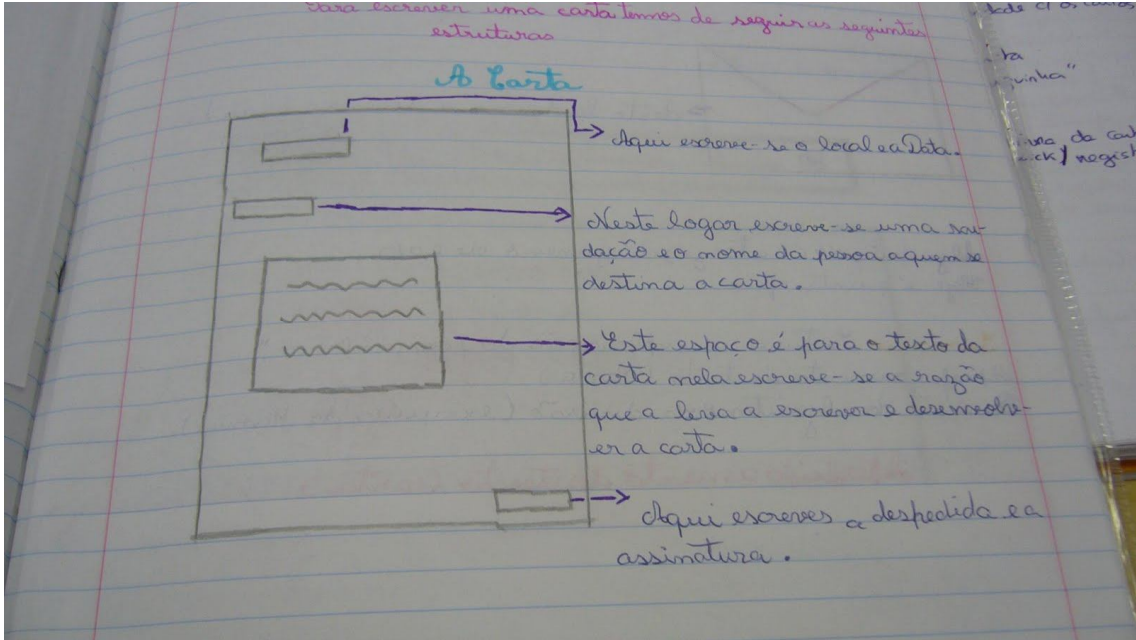 Para escrever uma carta temos de seguir as seguintes
estruturas
A Carta
Aqui escreve-se o local e a Data.
Neste logar escreve-se uma sau-
dação e o nome da pessoa a quem se
destina a carta.
Este espaço é para o texto da
carta nela escreve-se a razão
que a leva a escrever e desenvolv-
er a carta.
Aqui escreves a despedida e a
assinatura.